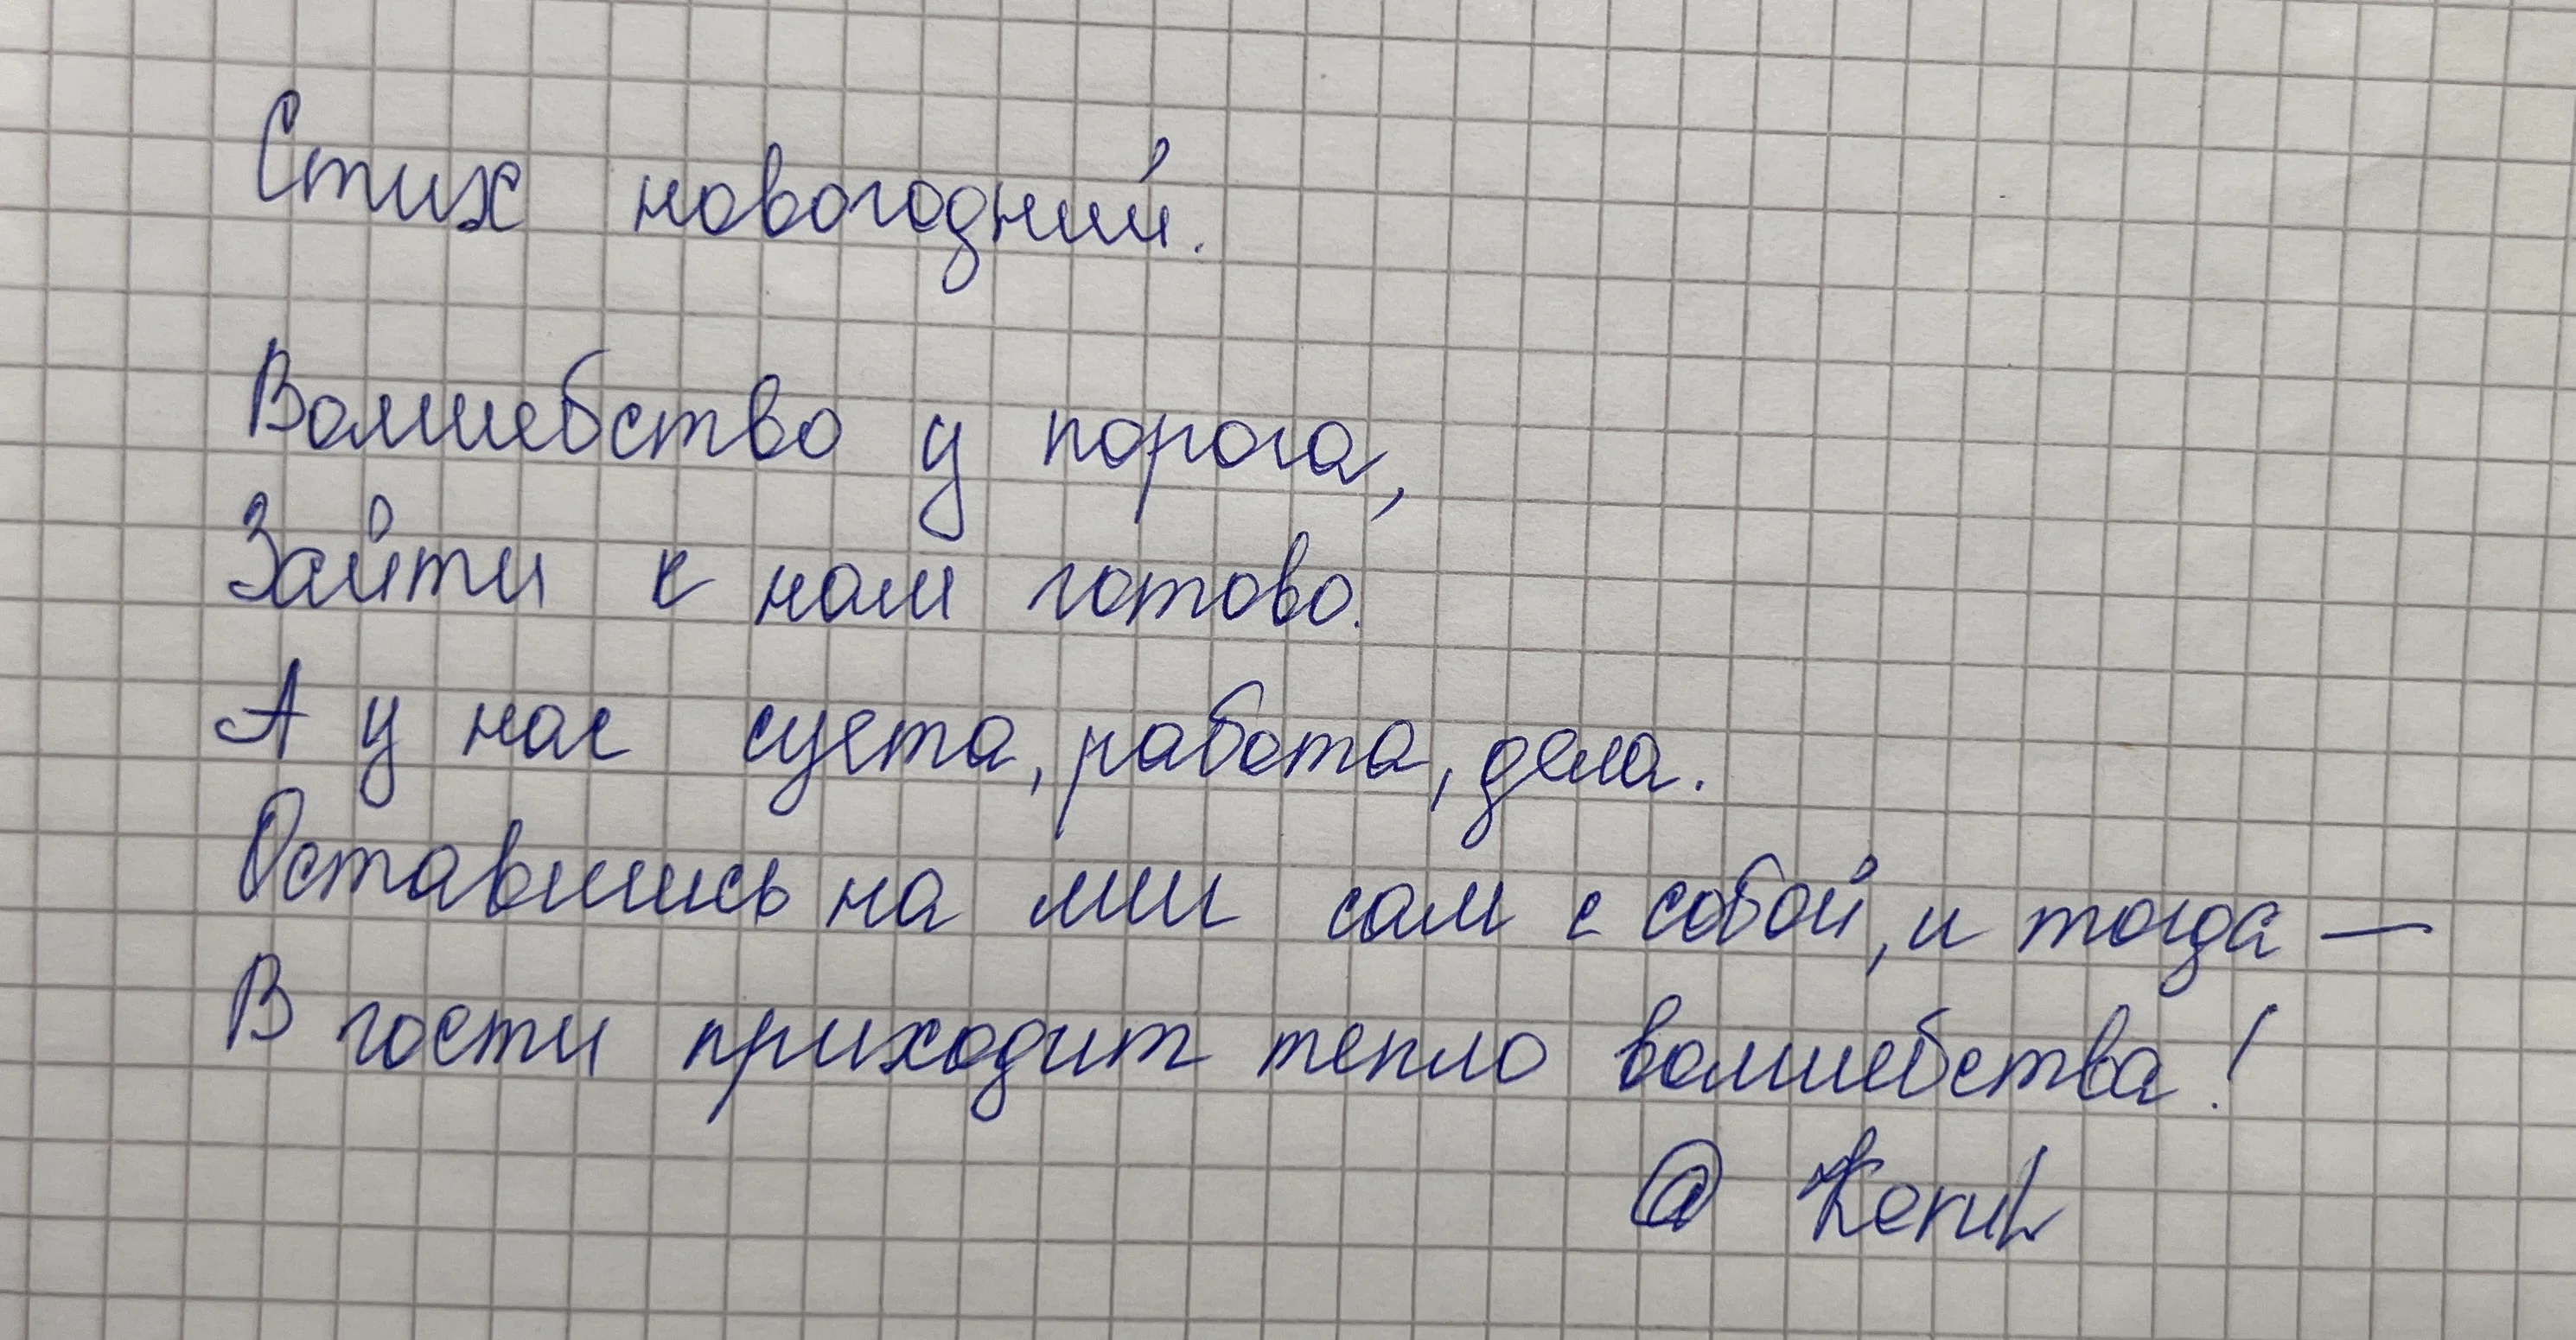 Стих новогодний.
Волшебство у порога,
Зайти к нам готово.
А у нас суета, работа, дела.
Оставшись на миг сам с собой, и тогда —
В гости приходит тепло волшебства!
@